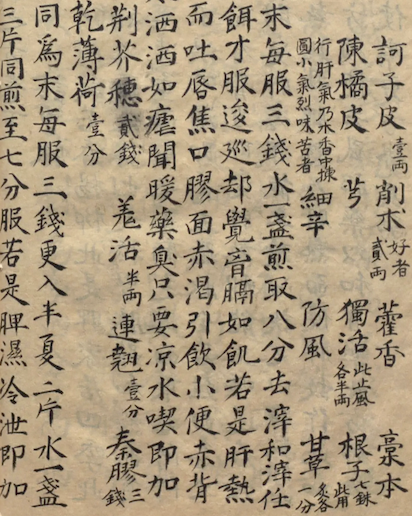 訶子皮壹兩削朮好者貳兩藿香稾本
陳橘皮芎獨活此止風各半兩根子七銖此用
行肝氣乃木香中揀圓小氣烈味苦者細辛防風甘草炙各一分
末每服三錢水一盞煎取八分去滓和滓任
餌才服逡廵却覺音膈如飢若是肝熱
而吐唇焦口膠面赤渴引飲小便赤背
洒洒如瘧聞暖藥臭只要凉水喫即加
荆芥穗貳錢羗活半兩連翹壹分秦膠三錢
乾薄荷壹分
同爲末每服三錢更入半夏二片水一盞
三片同煎至七分服若是脾濕冷泄即加